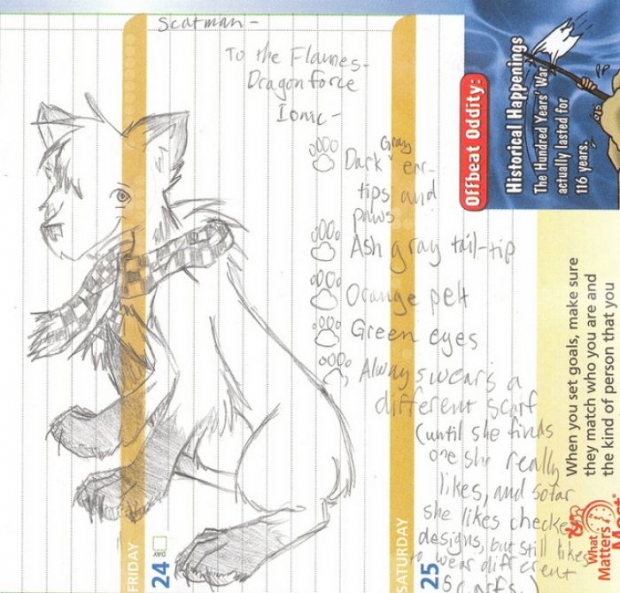 Scatman-
To the Flames-
Dragonforce
Ionic-
Dark Gray ear-
tips and
paws
Ash gray tail-tip
Orange pelt
Green eyes
Always wears a
different scarf
(until she finds
one she really
likes, and so far
she likes checke
designs, but still likes
to wear different
Scarfs.)
FRIDAY
24
DAY
SATURDAY
25
Offbeat Oddity:
Historical Happenings
The Hundred Years' War
actually lasted for
116 years.
When you set goals, make sure
they match who you are and
the kind of person that you
What
Matters
Most